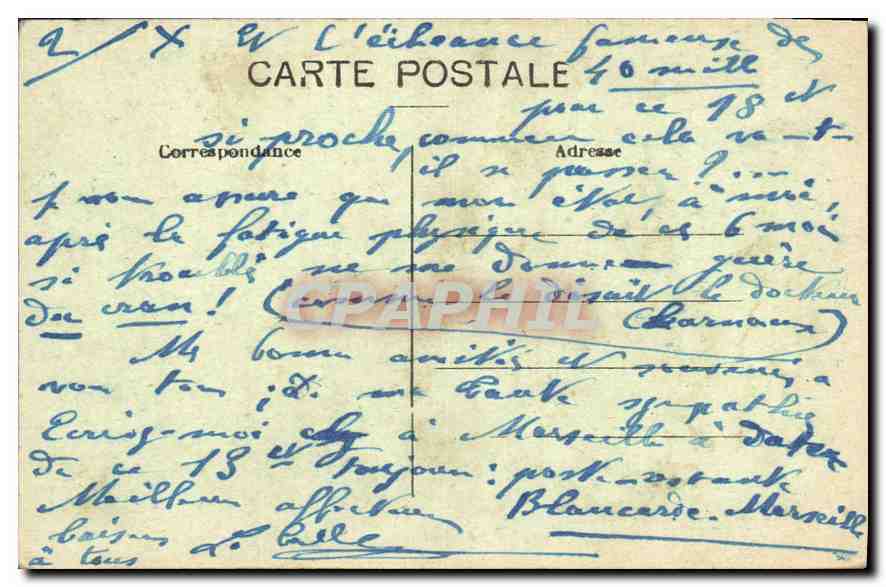 2/ X Et l'échéance fameuse de
CARTE POSTALE 40 mille
pour ce 18 et
si proche, comment cela va-t-
Correspondance Adresse
il se passer ?...
J vous assure que mon état, à moi,
après la fatigue physique de ces 6 mois
si troublés ne me donne guère
du cran ! (comme le disait le docteur
CPAPHIL
Charnaux)
Mes bonnes amitiés et souvenirs à
vous tous ; à ma tante sympathies
Ecrivez-moi à Marseille à dater
de ce 13 et toujours : poste-restante
Meilleures affections Blancarde-Marseille
baisers
à tous